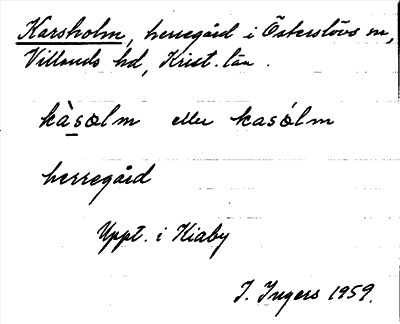 Karsholm, herregård i Österslövs sn,
Villands hd, Krist. län.
kàsơlm eller kasólm
herregård
Uppt. i Kiaby
I. Ingers 1959.